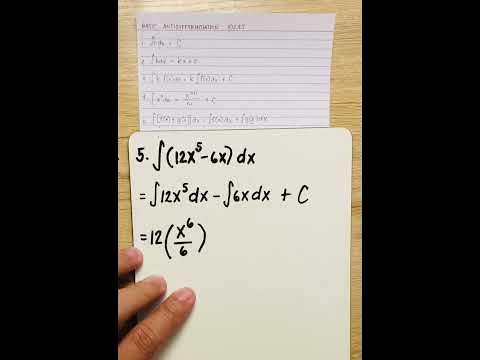 BASIC ANTIDIFFERENTIATION RULES
1. ∫dx + C
2. ∫kdx = kx + C
3. ∫k f(x)dx = k∫f(x)dx + C
4. ∫xⁿdx = + C
5.
5. ∫(12x⁵-6x) dx
= ∫12x⁵dx - ∫6xdx + C
= 12(x⁶/6)